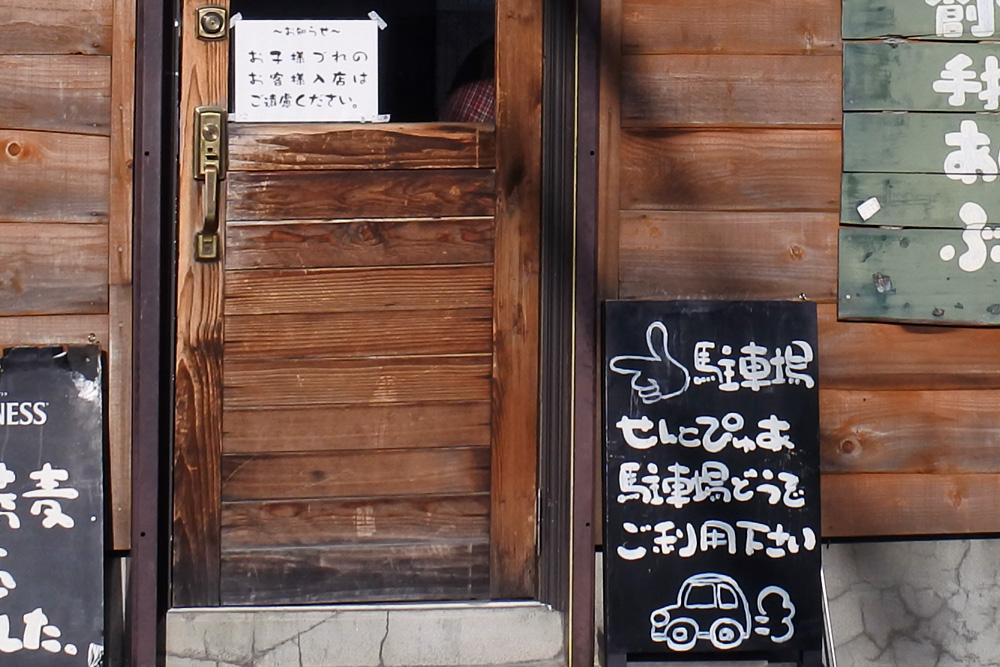 〜お知らせ〜
お子様づれの
お客様入店は
ご遠慮ください。
駐車場
せんとぴゅあ
駐車場どうぞ
ご利用下さい
NESS
蕎麦
した。
創
手打
あ
ぶ